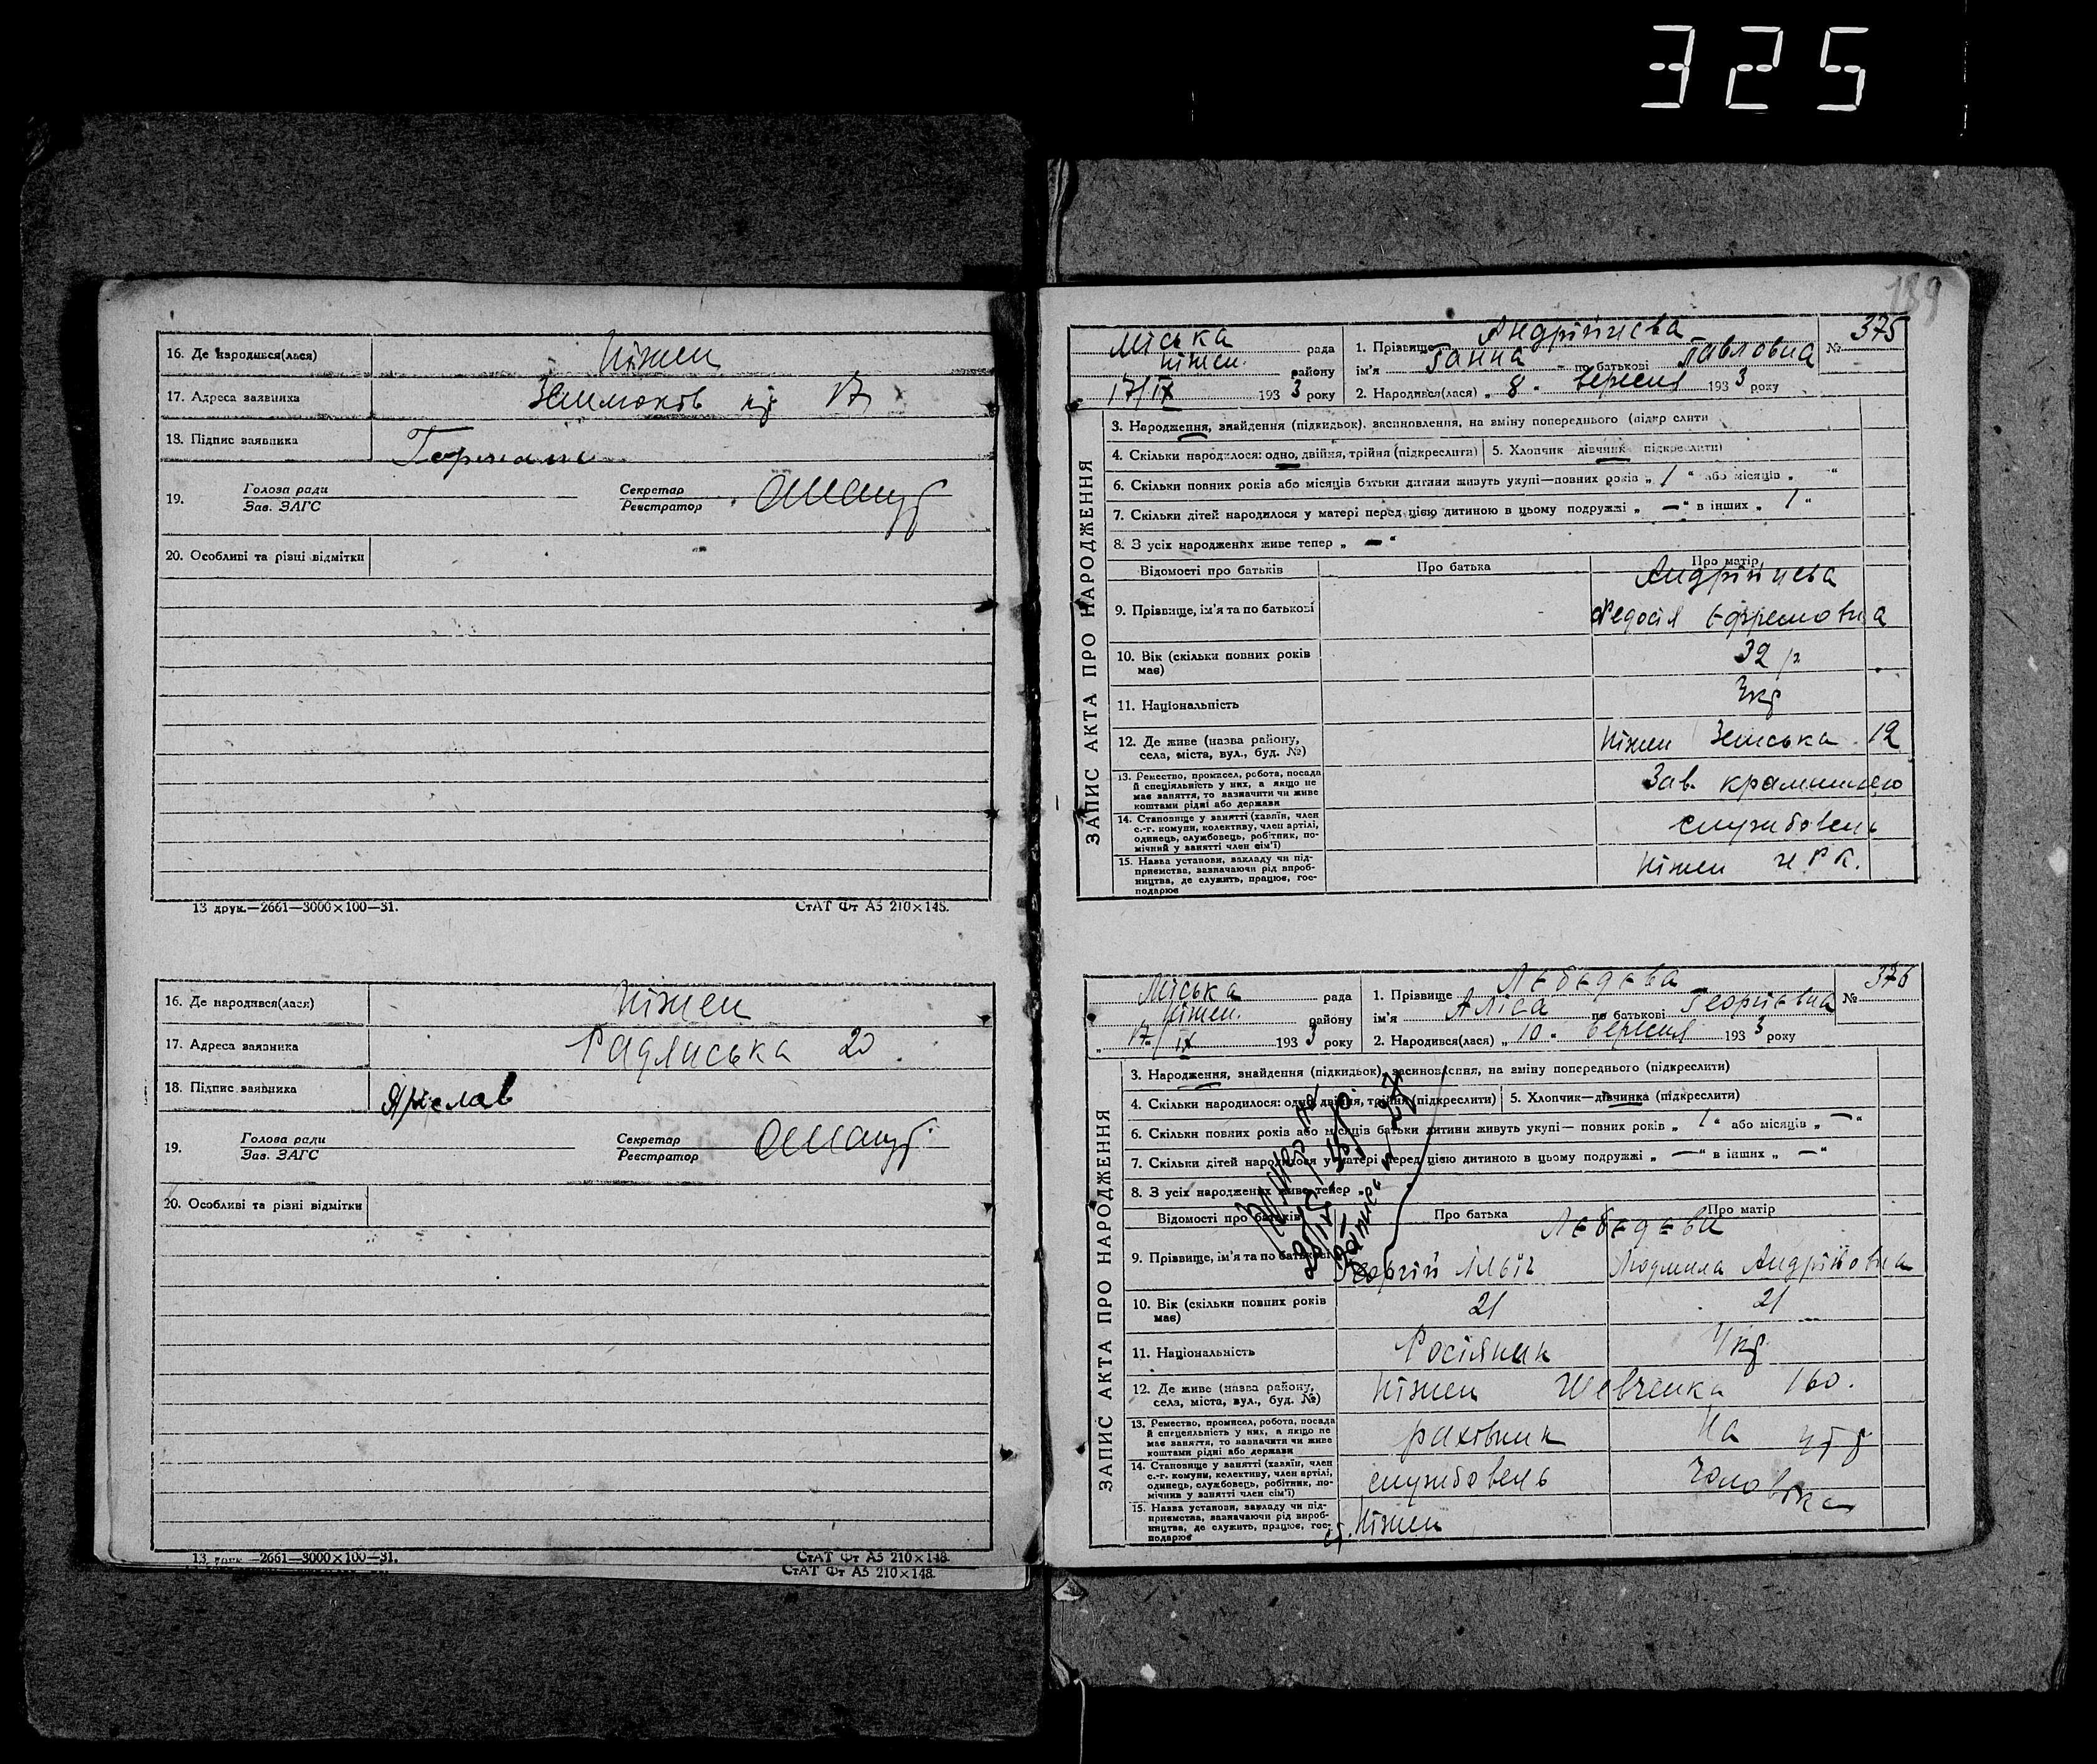 325
16. Де народився(лася) Ніжен
17. Адреса заявника 17
18. Підпис заявника
19. Голова ради Секретар
Зав. ЗАГС Реєстратор
20. Особливі та різні відмітки
13 друк.—2661—3000×100—31. СтАТ Фт А5 210×148.
16. Де народився(лася) Ніжен
17. Адреса заявника Радянська 20
18. Підпис заявника
19. Голова ради Секретар
Зав. ЗАГС Реєстратор
20. Особливі та різні відмітки
13 друк.—2661—3000×100—31. СтАТ Фт А5 210×148.
СтАТ Фт А5 210×148.
189
ЗАПИС АКТА ПРО НАРОДЖЕННЯ
Міська рада 1. Прізвище № 375
Ніжен. району ім'я Ганна по батькові Павловна
17/IX 1933 року 2. Народився(лася) „ 8 " вересня 1933 року
3. Народження, знайдення (підкидьок), засиновлення, на зміну попереднього (підкреслити
4. Скільки народилося: одно, двійня, трійня (підкреслити) 5. Хлопчик дівчинк підкреслити)
6. Скільки повних років або місяців батьки дитини живуть укупі—повних років „ 1 " або місяців „ "
7. Скільки дітей народилося у матері перед цією дитиною в цьому подружжі „ — " в інших „ 1 "
8. З усіх народжених живе тепер „ — "
Відомості про батьків Про батька Про матір
9. Прізвище, ім'я та по батькові Федосія Ефремовна
10. Вік (скільки повних років має) 32 р
11. Національність Укр
12. Де живе (назва району, села, міста, вул., буд. №) Ніжен Земська 12
13. Ремество, промисел, робота, посада й спеціяльність у них, а якщо не має заняття, то зазначити чи живе коштами рідні або держави Зав. крамницею
14. Становище у занятті (хазяїн, член с.-г. комуни, колективу, член артілі, одинець, службовець, робітник, помічний у занятті член сім'ї) службовець
15. Назва установи, закладу чи підприємства, зазначаючи рід виробництва, де служить, працює, господарює Ніжен
ЗАПИС АКТА ПРО НАРОДЖЕННЯ
Міська рада 1. Прізвище Лебедева № 376
Ніжен. району ім'я Аліса по батькові Георгієвна
„ 17/IX 1933 року 2. Народився(лася) „ 10 " вересня 1933 року
3. Народження, знайдення (підкидьок), засиновлення, на зміну попереднього (підкреслити)
4. Скільки народилося: одно, двійня, трійня (підкреслити) 5. Хлопчик—дівчинка (підкреслити)
6. Скільки повних років або місяців батьки дитини живуть укупі— повних років „ 1 " або місяців „ — "
7. Скільки дітей народилося у матері перед цією дитиною в цьому подружжі „ — " в інших „ — "
8. З усіх народжених живе тепер „
Відомості про батьків Про батька Про матір
Лебедеви
9. Прізвище, ім'я та по батькові Георгій Ільїч Людмила Андріївовна
10. Вік (скільки повних років має) 21 21
11. Національність Росіянин Укр
12. Де живе (назва району, села, міста, вул., буд. №) Ніжен Шевченка 160.
13. Ремество, промисел, робота, посада й спеціяльність у них, а якщо не має заняття, то зазначити чи живе коштами рідні або держави рахівник На утр
14. Становище у занятті (хазяїн, член с.-г. комуни, колективу, член артілі, одинець, службовець, робітник, помічний у занятті член сім'ї) службовець чоловіка
15. Назва установи, закладу чи підприємства, зазначаючи рід виробництва, де служить, працює, господарює ст. Ніжен